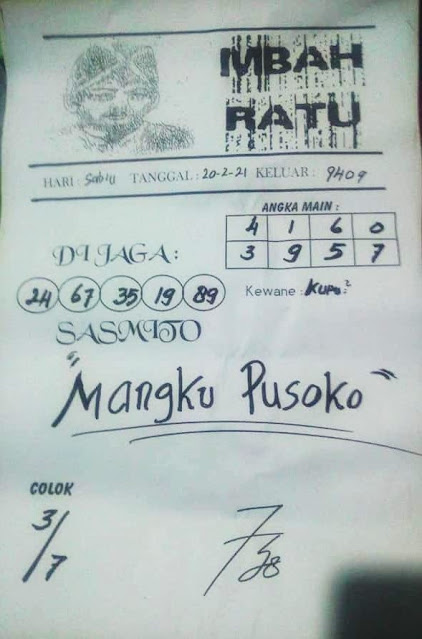 MBAH
RATU
HARI : Sabtu TANGGAL : 20-2-21 KELUAR : 9409
ANGKA MAIN :
4 1 6 0
3 9 5 7
DI JAGA :
24 67 35 19 89
Kewane : Kupu²
SASMITO
"Mangku Pusoko"
COLOK
3/7